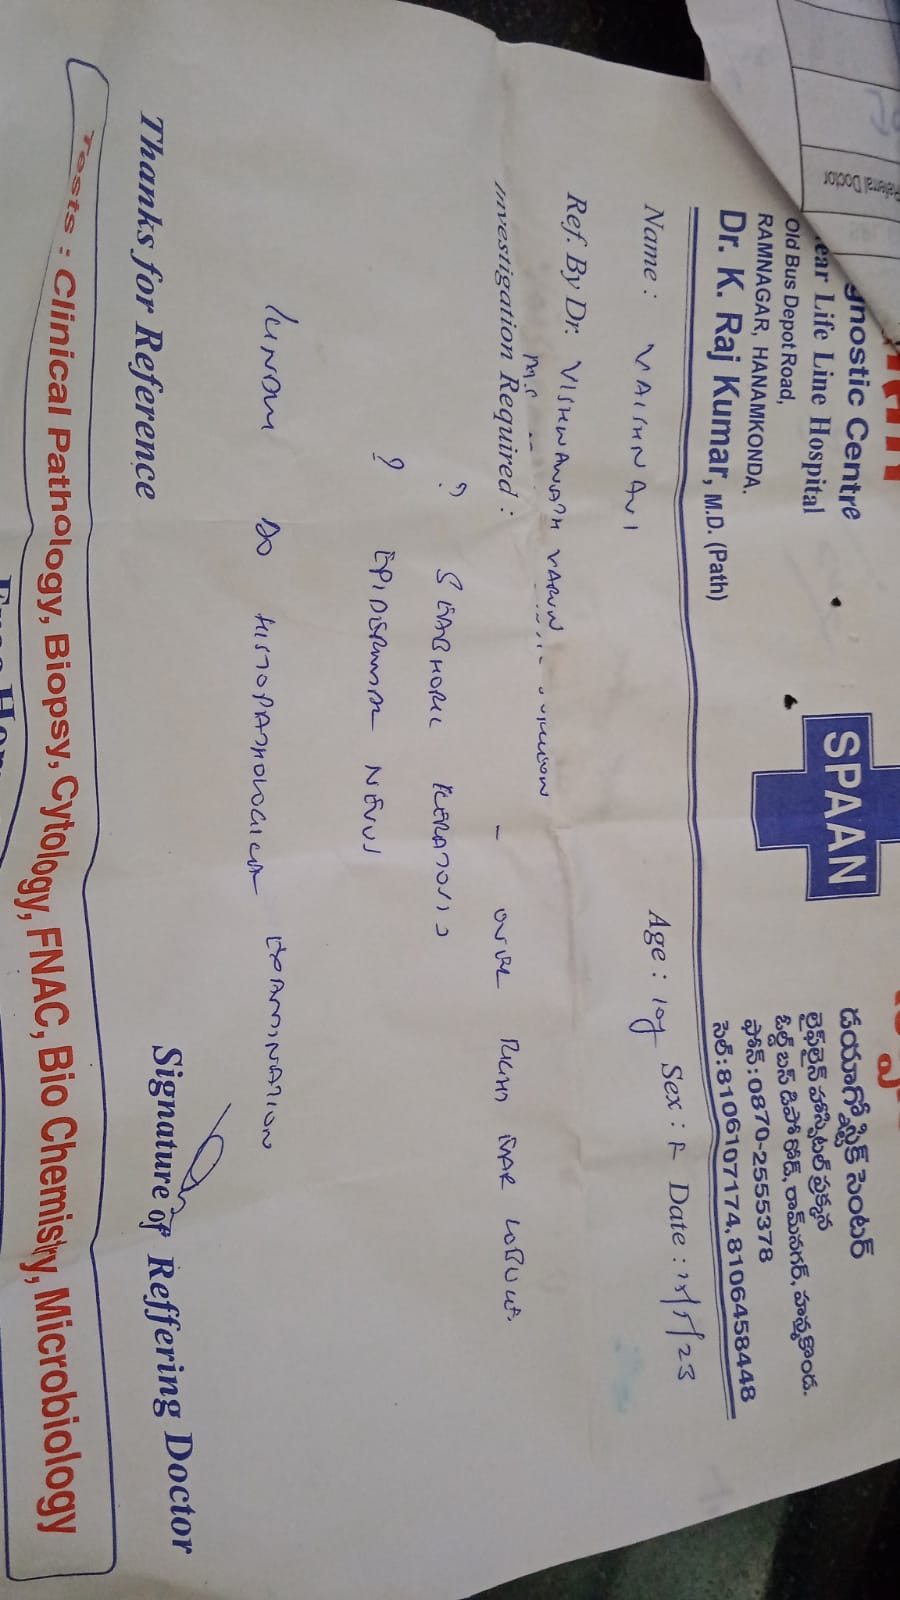 gnostic Centre
ear Life Line Hospital
Old Bus Depot Road,
RAMNAGAR, HANAMKONDA.
Dr. K. Raj Kumar, M.D. (Path)
SPAAN
డయాగ్నోస్టిక్ సెంటర్
లైఫ్‌లైన్ హాస్పిటల్ ప్రక్కన
ఓల్డ్ బస్ డిపో రోడ్, రామ్‌నగర్, హన్మకొండ.
ఫోన్ : 0870-2555378
సెల్ : 8106107174, 8106458448
Referral Doctor
Name : VAISHNAVI Age : 10y Sex : F Date : /23
Ref. By Dr. VISHWANATH VARUN
M.S
Investigation Required : - OVER RIGHT EAR LOBULE.
? SEABHORIC KERATOSIS
? EPIDERMAL NEVUS
KINDLY DO HISTOPATHOLOGICAL EXAMINATION
Thanks for Reference Signature of Reffering Doctor
Tests : Clinical Pathology, Biopsy, Cytology, FNAC, Bio Chemistry, Microbiology